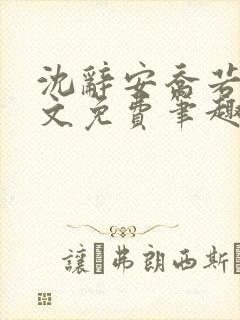 沈辭安喬若
文免費筆趣
讓 弗朗西斯